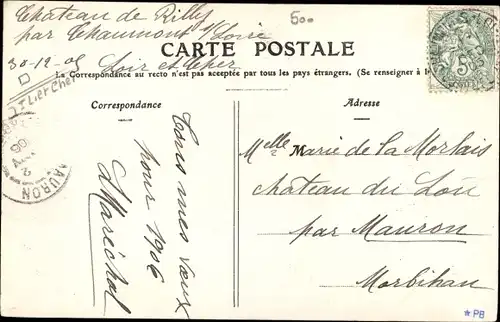 Château de Rilly
par Chaumont s/Loire
30-12-05 Loir et Cher
500
CARTE POSTALE
La Correspondance au recto n'est pas acceptée par tous les pays étrangers. (Se renseigner à
Correspondance
Adresse
Tous mes vœux
pour 1906
Maréchal
Melle Marie de la Morlais
M
Château du Lou
par Mauron
Morbihan
MAURON
5
*PB